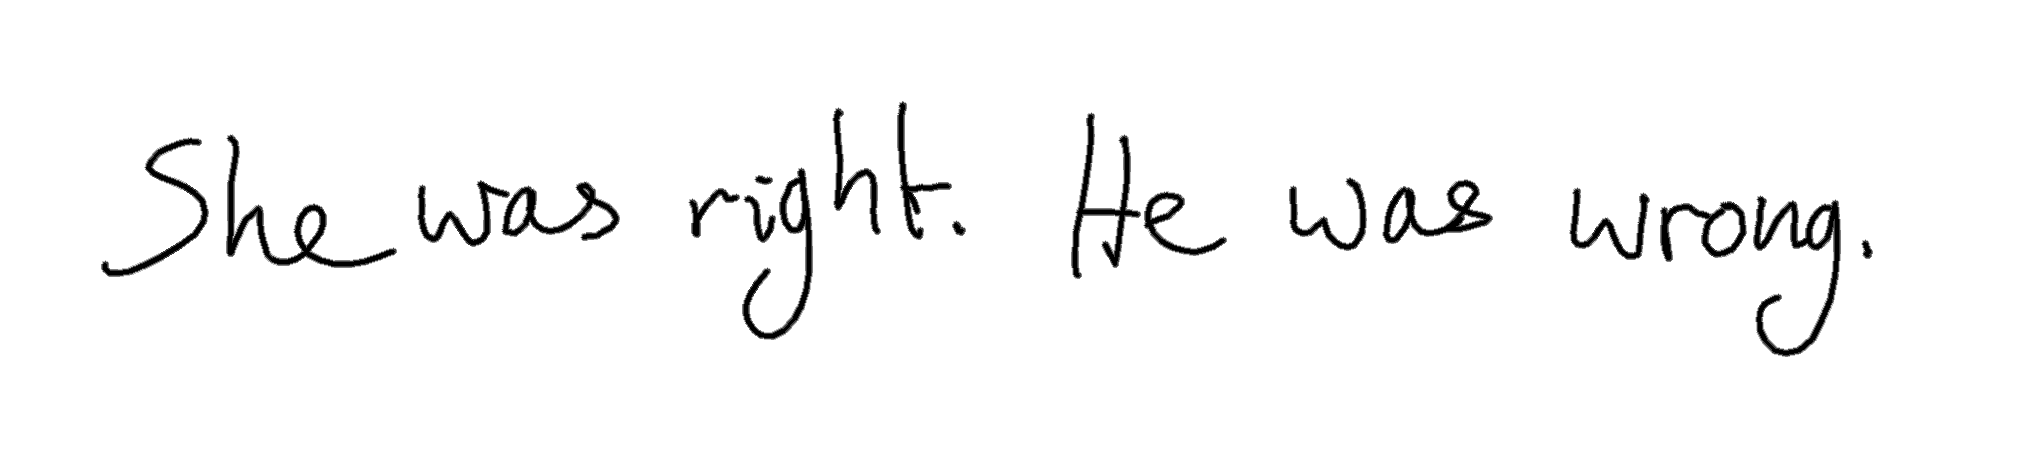 She was right. He was wrong.